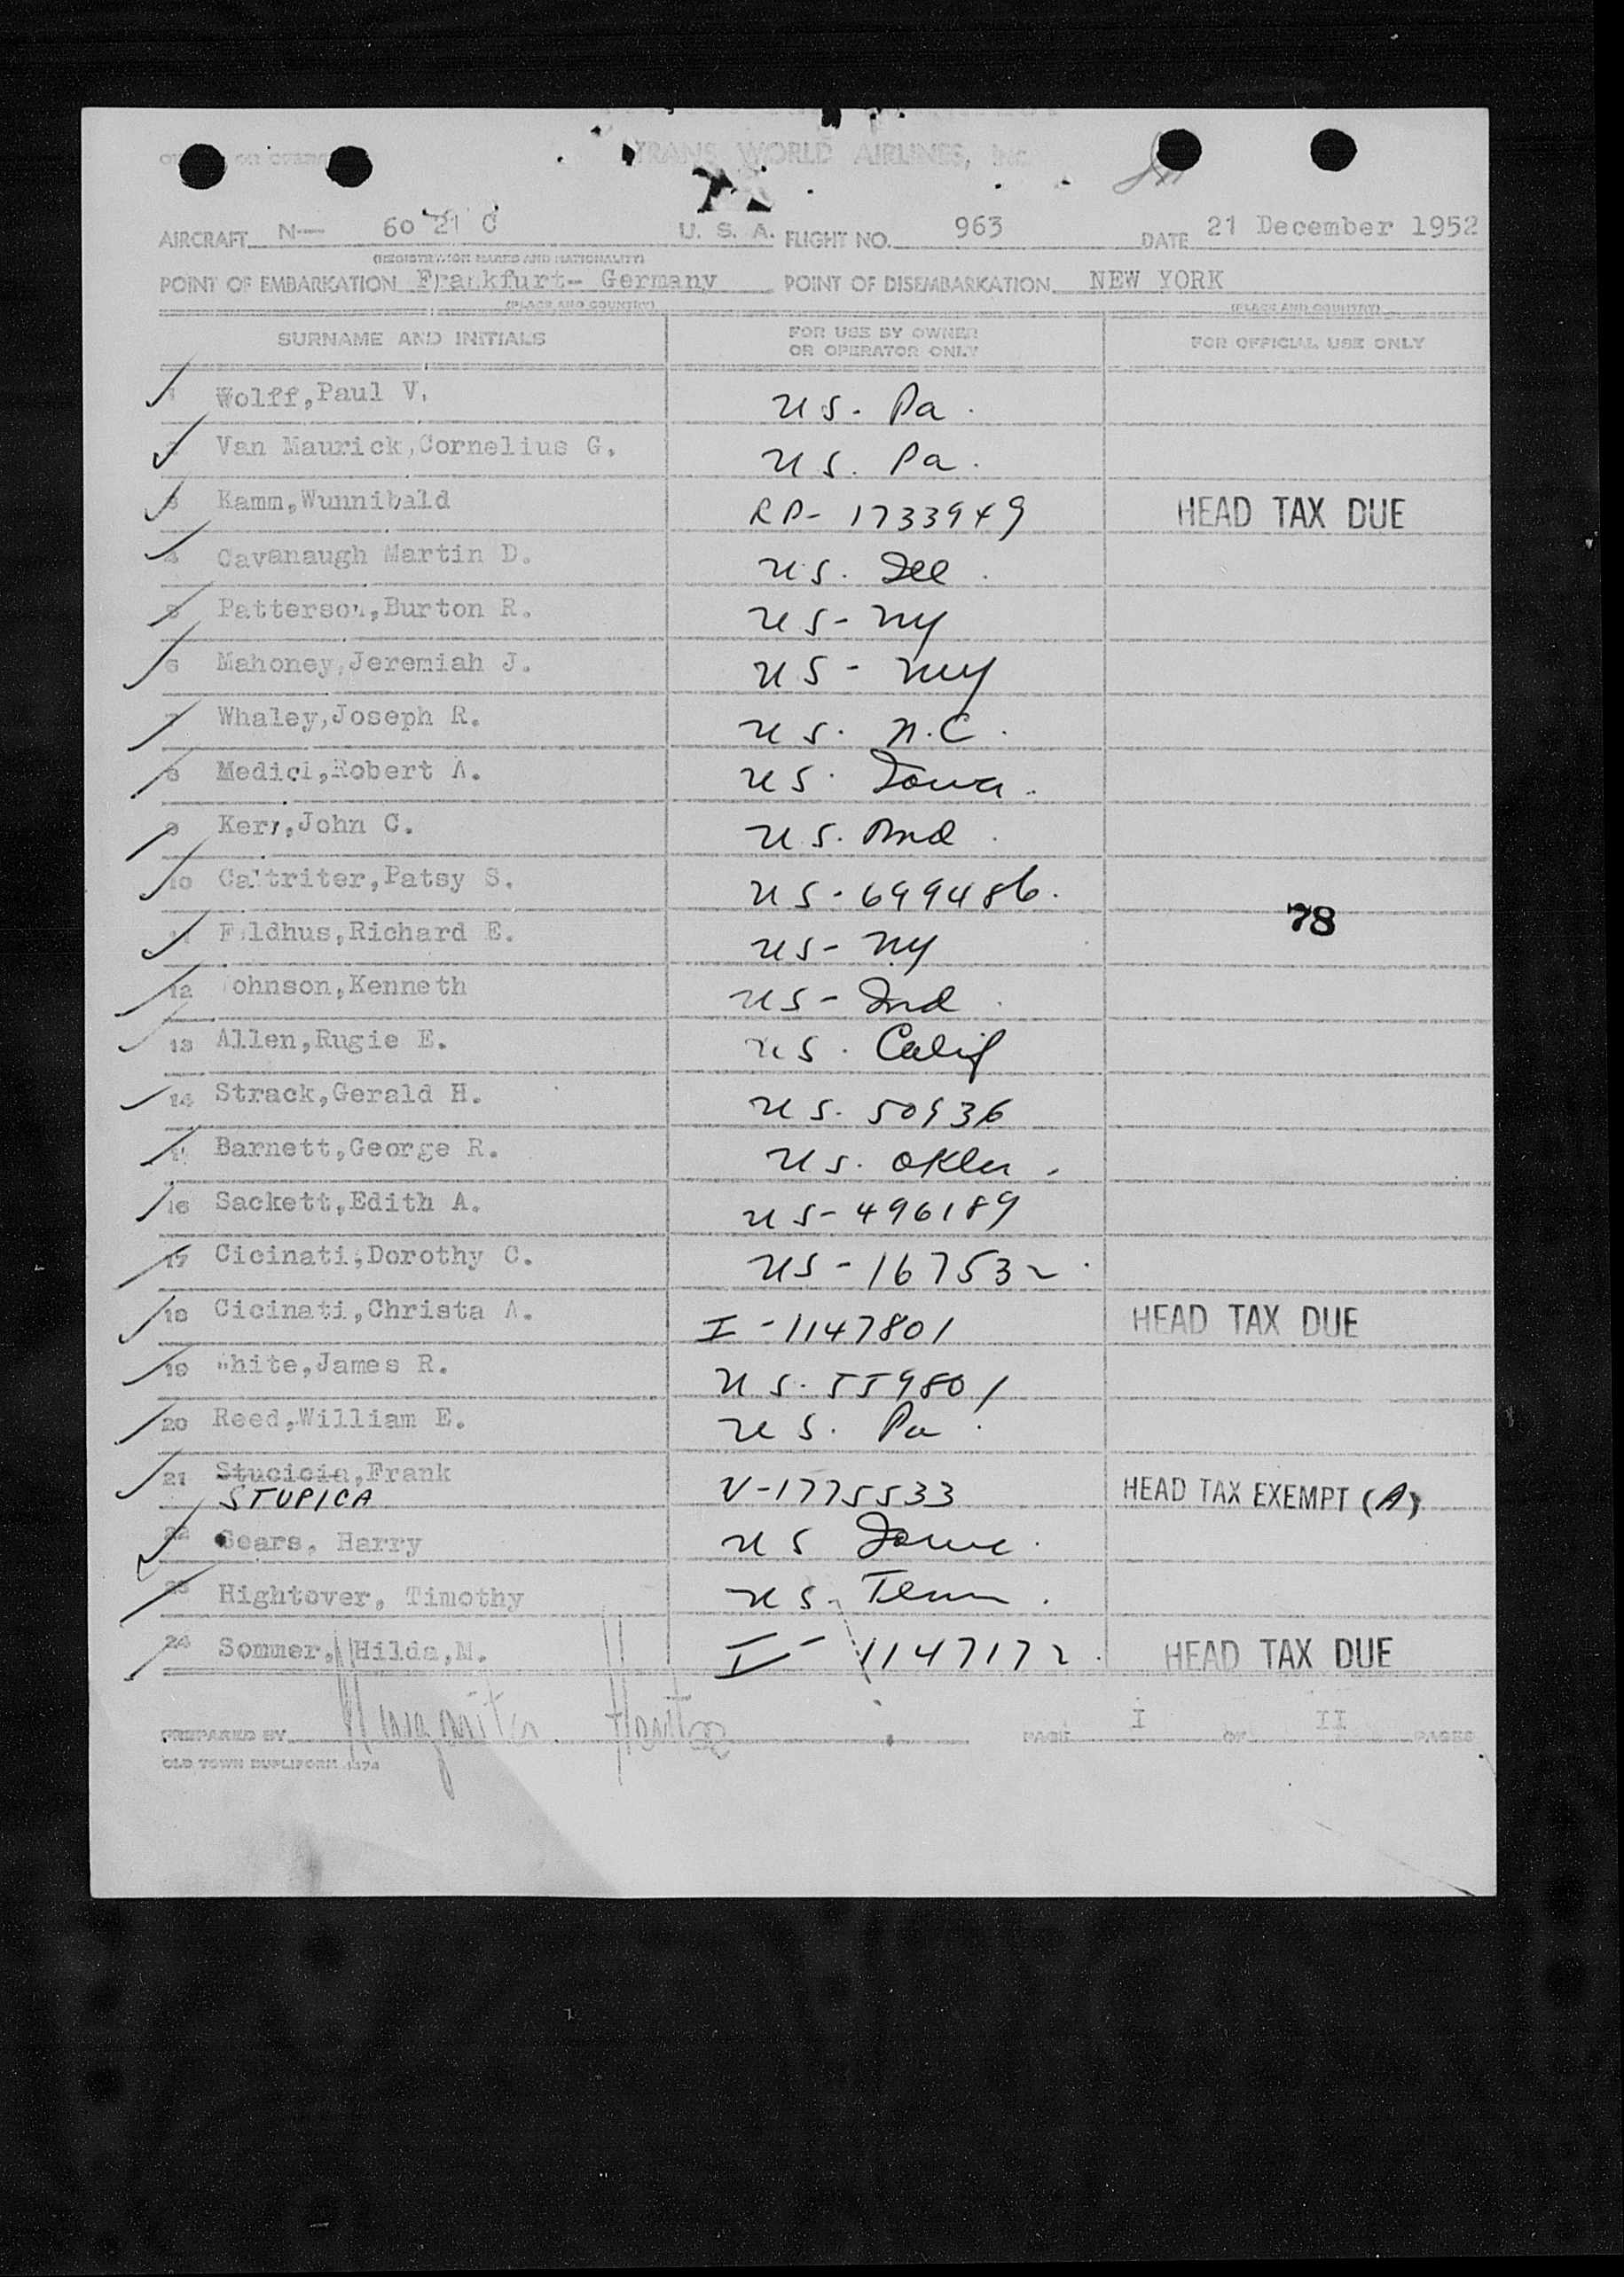 TRANS WORLD AIRLINES, Inc
AIRCRAFT N— 60 21 C U. S. A. FLIGHT NO. 963 DATE 21 December 1952
(REGISTRATION MARKS AND NATIONALITY)
POINT OF EMBARKATION Frankfurt- Germany POINT OF DISEMBARKATION NEW YORK
(PLACE AND COUNTRY) (PLACE AND COUNTRY)
SURNAME AND INITIALS FOR USE BY OWNER OR OPERATOR ONLY FOR OFFICIAL USE ONLY
1 Wolff,Paul V. US. Pa.
Van Maurick,Cornelius G. US. Pa.
3 Kamm,Wunnibald RP- 1733949 HEAD TAX DUE
4 Cavanaugh Martin D. US. Ill.
5 Patterson,Burton R. US- NY
6 Mahoney,Jeremiah J. US - NY
7 Whaley,Joseph R. US. N.C.
8 Medici,Robert A. US. Iowa.
9 Kerr,John C. US. Md.
10 Ca triter,Patsy S. US-699486.
78
11 F ldhus,Richard E. US- NY
12 ohnson,Kenneth US- Ind.
13 Allen,Rugie E. US. Calif
14 Strack,Gerald H. US. 50936
Barnett,George R. US. Okla.
16 Sackett,Edith A. US-496189
17 Cicinati,Dorothy C. US-167532
18 Cicinati,Christa A. I-1147801 HEAD TAX DUE
19 hite,James R. US. 559801
20 Reed,William E. US. Pa.
21 Stucicia,Frank V-1775533 HEAD TAX EXEMPT (A)
STUPICA
22 Sears, Harry US Iowa.
23 Hightover, Timothy US. Tenn.
24 Sommer, Hilda,M. I- 1147172. HEAD TAX DUE
PREPARED BY PAGE I OF II PAGES
OLD TOWN DUPLIFORM